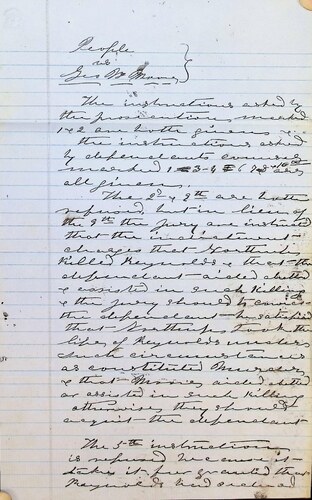 People
vs
Geo W Moore
The instructions asked by
the prosecution, marked
1 & 2 are both given &
the instructions asked
by defendants counsel
marked 1 3 4 6 are
all given.
The 2d & 9th are both
refused, but in lieu of
the 9th the jury are instructed
that the indictment
charges that
killed Reynolds & that the
defendant aided abetted
& assisted in such killing
& the jury should to convict
the defendant be satisfied
that took the
life of Reynolds under
such circumstances
as constituted Murder
& that Moore aided abetted
or assisted in such killing
otherwise they should
acquit the defendant
The 5th instruction
is refused because it
takes it for granted that
Reynolds had